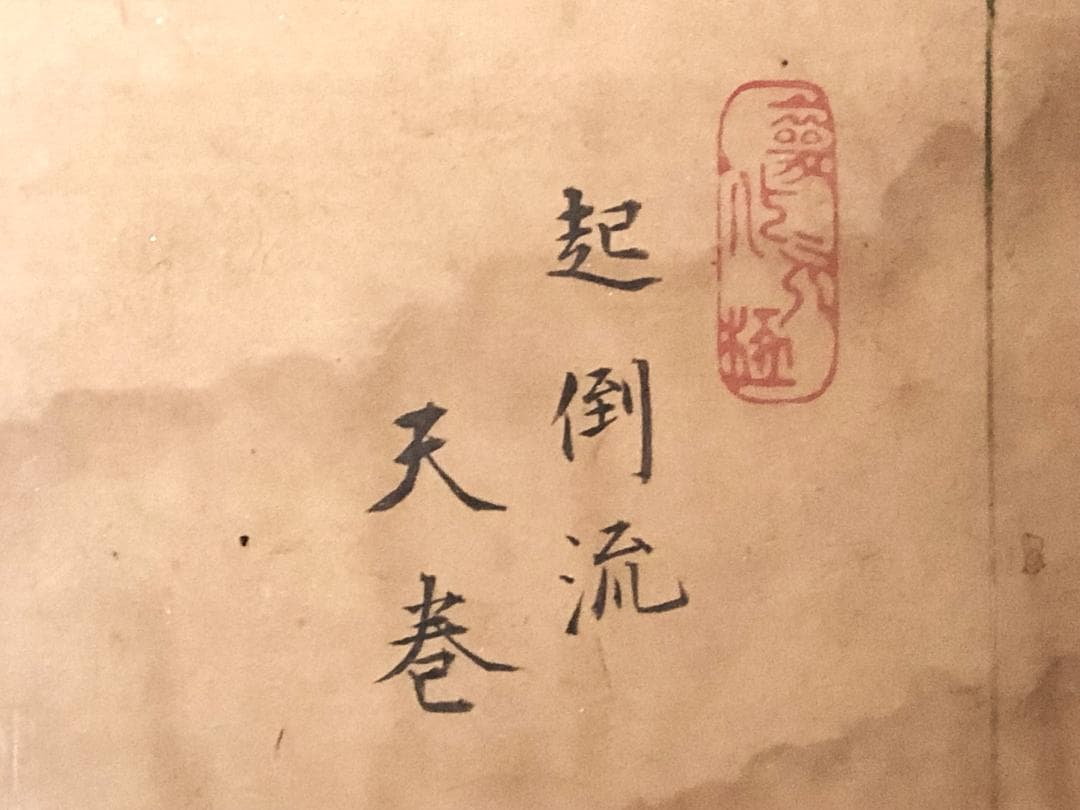 起倒流
天巻